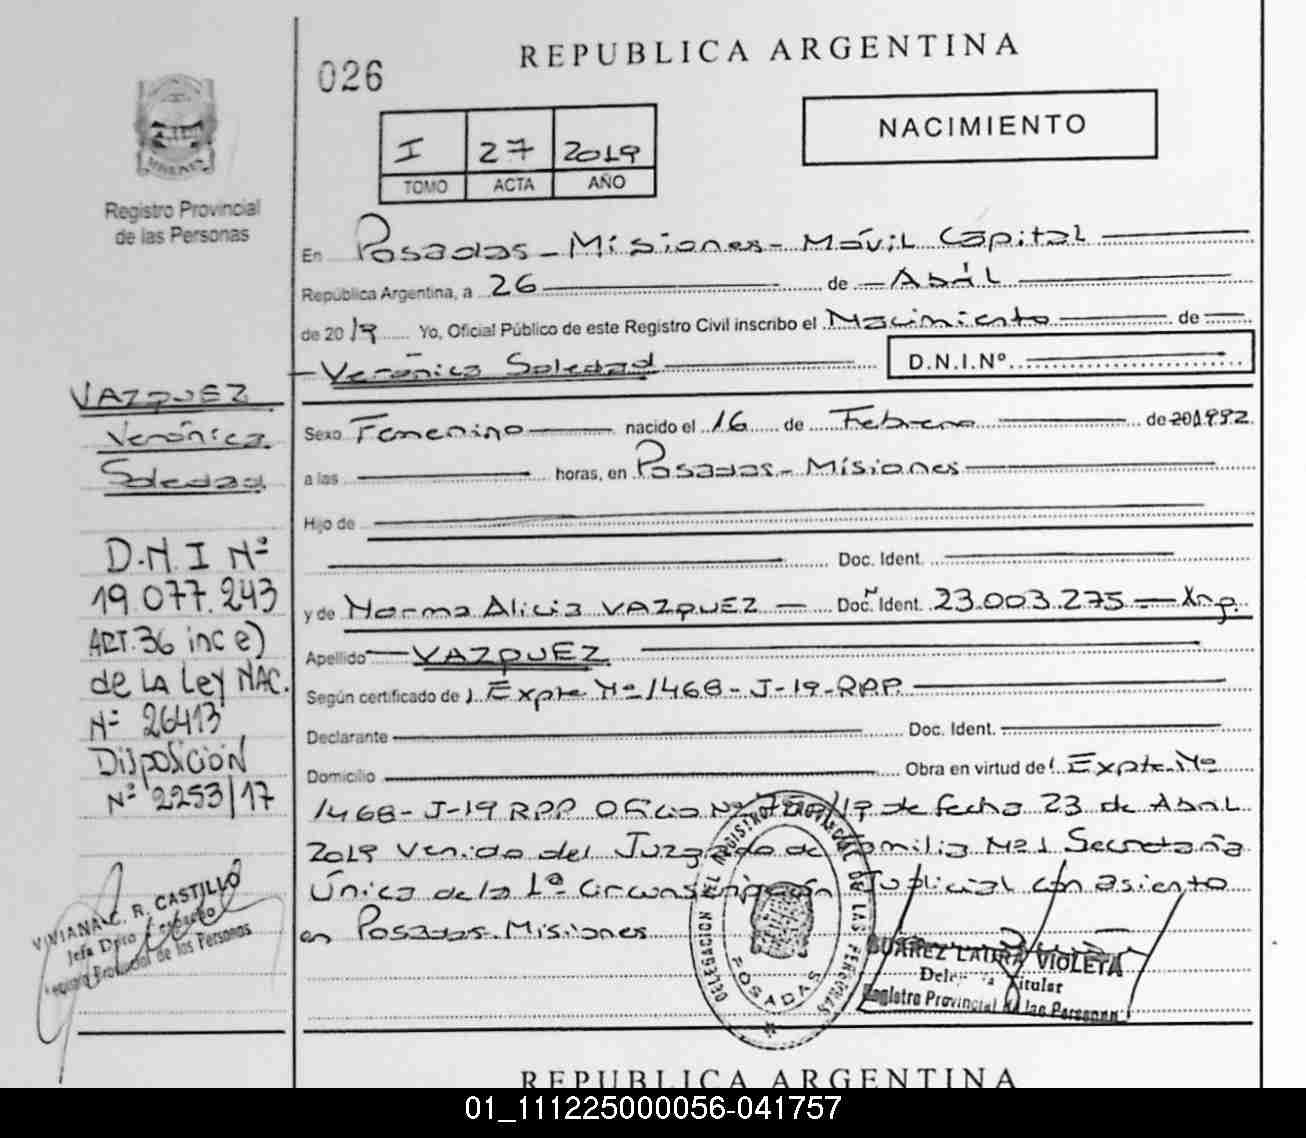 REPUBLICA ARGENTINA
026
NACIMIENTO
I 27 2019
TOMO ACTA AÑO
Registro Provincial
de las Personas
En Posadas - Misiones - Móvil Capital
República Argentina, a 26 de Abril
de 2019 Yo, Oficial Público de este Registro Civil inscribo el Nacimiento de
Verónica Soledad D.N.I.Nº
VAZQUEZ
Verónica
Soledad
Sexo Femenino nacido el 16 de Febrero de 201992
a las horas, en Posadas - Misiones
Hijo de
Doc. Ident.
D.N.I Nº
19.077.243
ART. 36 inc e)
de LA Ley NAC.
Nº 26413
Disposición
Nº 2253/17
y de Norma Alicia VAZQUEZ - Doc. Ident. 23.003.275
Apellido VAZQUEZ
Según certificado de Expte Nº 1468-J-19-RPP
Declarante Doc. Ident.
Domicilio Obra en virtud de Expte. Nº
1468-J-19 RPP Oficio Nº /19 de fecha 23 de Abril
2019 Venido del Juzgado de Familia Nº 1 Secretaría
Única de la 1ª Circunscripción Judicial con asiento
en Posadas. Misiones
VIVIANA C. R. CASTILLO
Jefa Dpto
Registro Provincial de las Personas
DELEGACION DEL REGISTRO PROVINCIAL DE LAS PERSONAS
POSADAS
SUAREZ LAURA VIOLETA
Delegada Titular
Registro Provincial de las Personas
REPUBLICA ARGENTINA
01_111225000056-041757